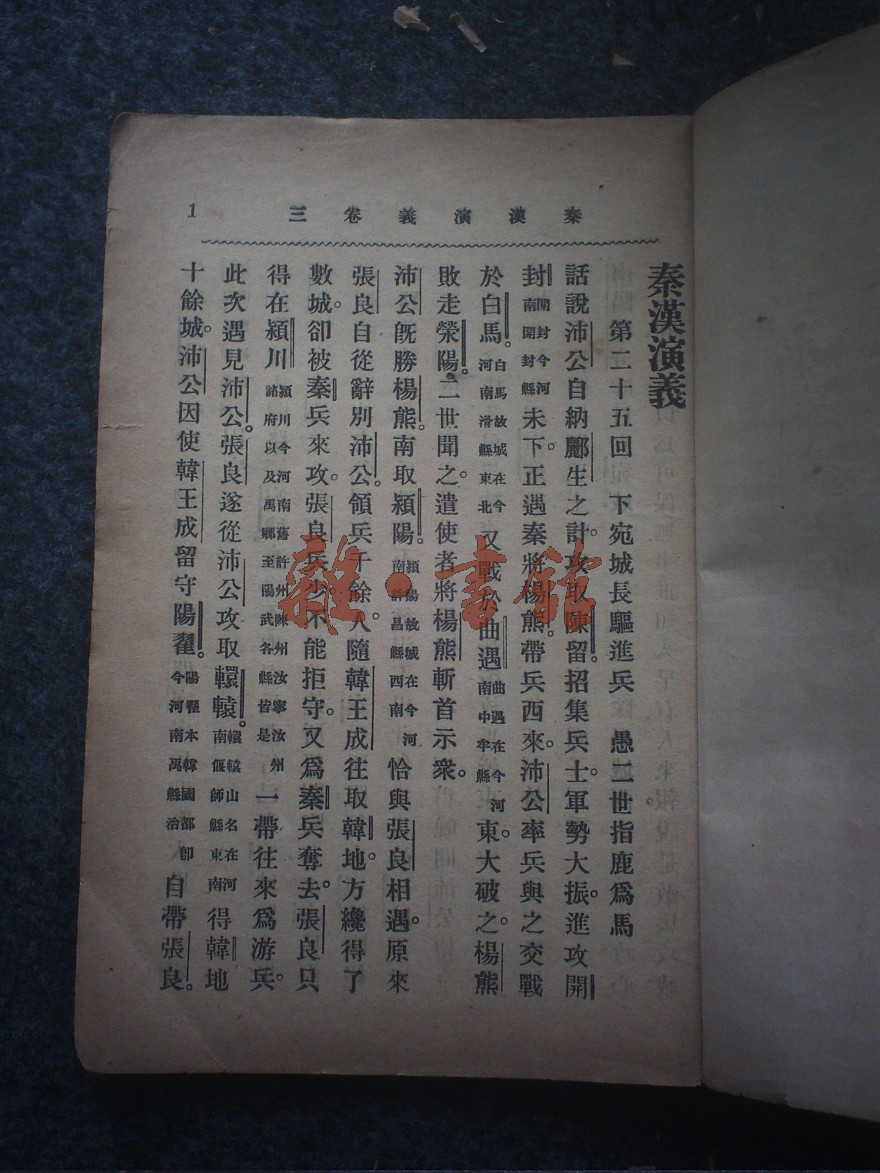 秦漢演義卷三 1
秦漢演義
第二十五回 下宛城長驅進兵 愚二世指鹿爲馬
話說沛公自納酈生之計。攻取陳留。招集兵士。軍勢大振。進攻開
封開封今河南開封縣未下。正遇秦將楊熊。帶兵西來。沛公率兵與之交戰
於白馬。白馬故城在今河南滑縣東北又戰於曲遇曲遇在今河南中牟縣東。大破之。楊熊
敗走滎陽。二世聞之。遣使者將楊熊斬首示衆。
沛公旣勝楊熊。南取潁陽。潁陽故城在今河南許昌縣西南恰與張良相遇。原來
張良自從辭別沛公。領兵千餘人。隨韓王成往取韓地。方纔得了
數城。卻被秦兵來攻。張良兵少。不能拒守。又爲秦兵奪去。張良只
得在潁川潁川今河南舊許州陳州汝寧汝州諸府以及禹鄉至陽武各縣皆是一帶往來爲游兵。
此次遇見沛公。張良遂從沛公攻取轘轅。轘轅山名在河南偃師縣東南得韓地
十餘城。沛公因使韓王成留守陽翟。陽翟本韓國都卽今河南禹縣治自帶張良。
雜·書館